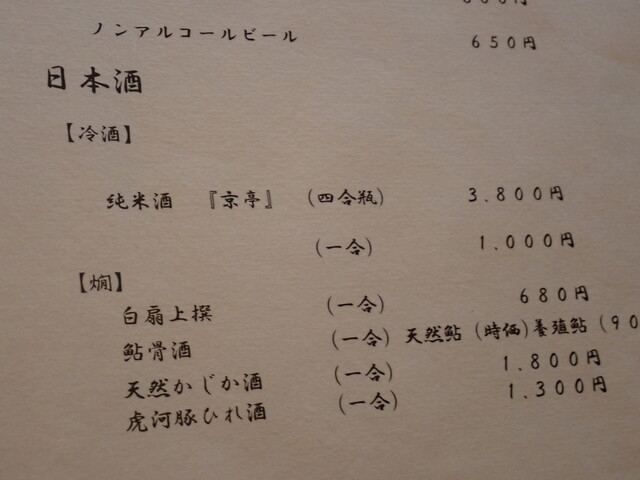 ノンアルコールビール 650円
日本酒
【冷酒】
純米酒 『京亭』 (四合瓶) 3.800円
(一合) 1.000円
【燗】
白扇上撰 (一合) 680円
鮎骨酒 (一合) 天然鮎 (時価)養殖鮎 (90
天然かじか酒 (一合) 1.800円
虎河豚ひれ酒 (一合) 1.300円